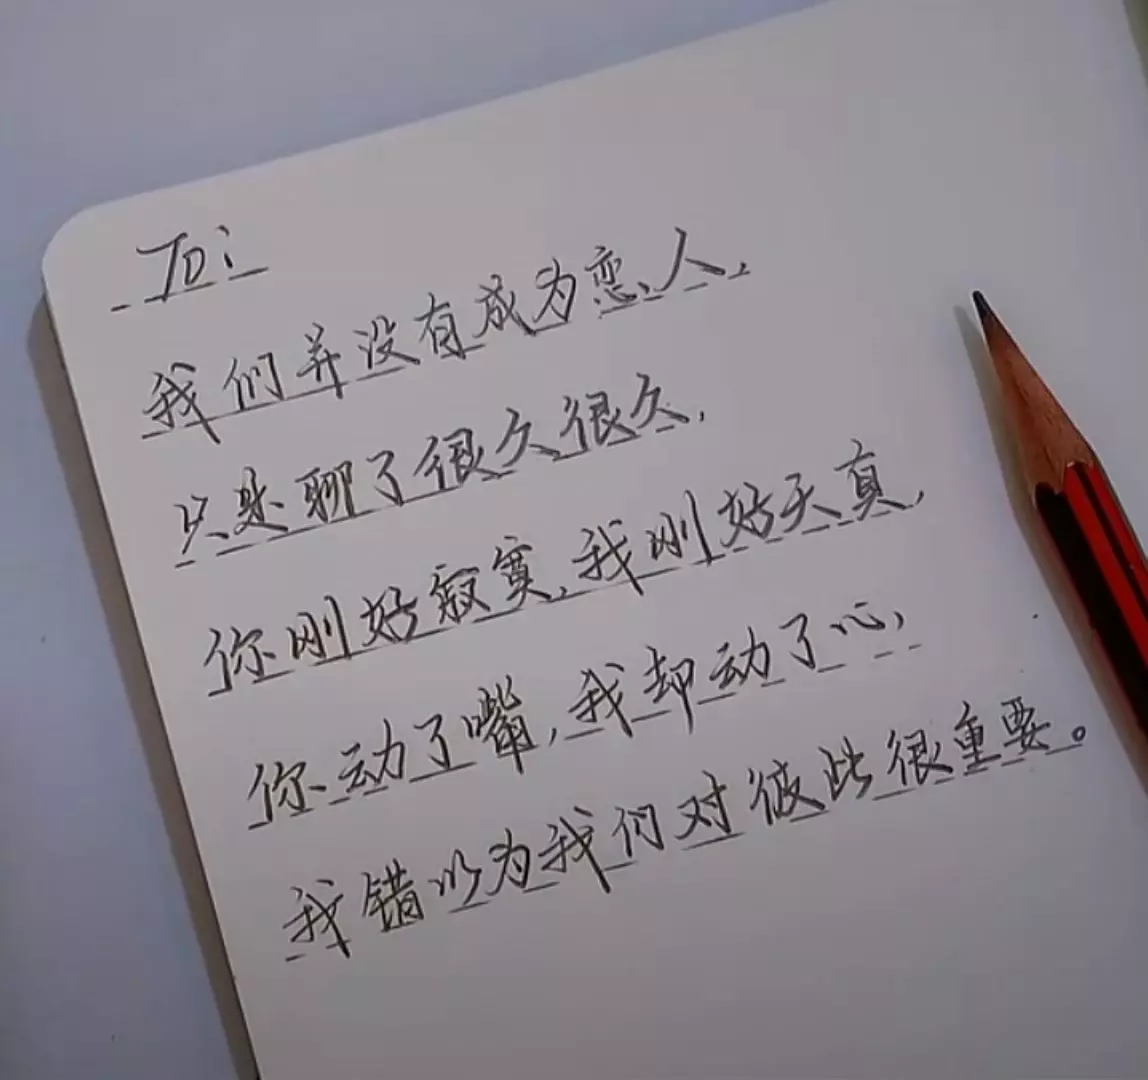 To:
我们并没有成为恋人,
只是聊了很久很久,
你刚好寂寞,我刚好天真,
你动了嘴,我却动了心,
我错以为我们对彼此很重要。